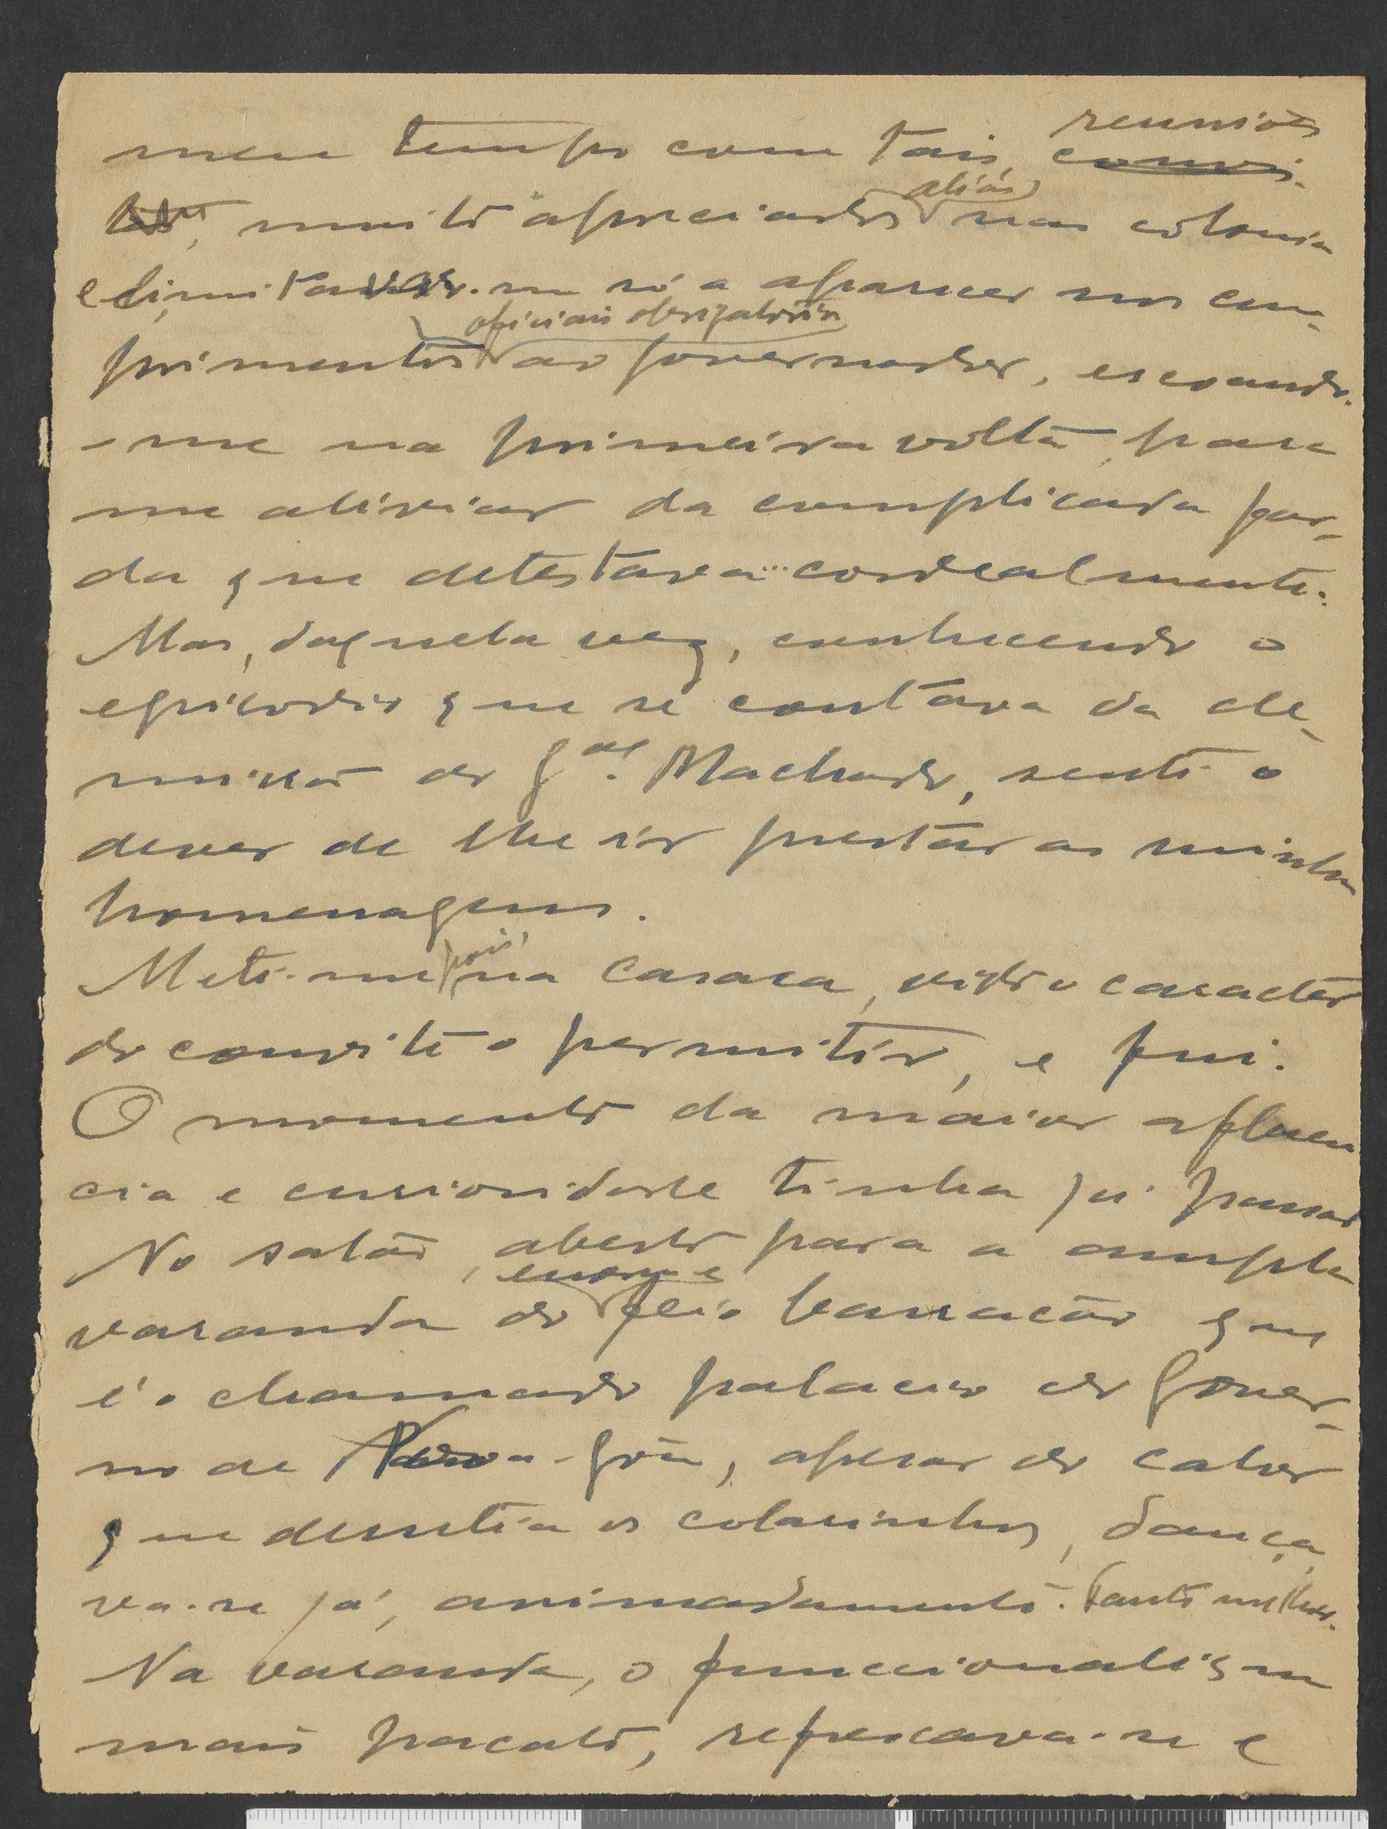 meu tempo com tais reuniões
muito apreciados aliás nas colonia
e limitava-me só a aparecer nos cum-
primentos oficiais obrigatorios ao governador, escoando-
-me na primeira volta, para
me aliviar da complicada far-
da que detestava... cordealmente.
Mas, daquela vez, conhecendo o
episodio que se contava da de-
missão do Gal. Machado, senti o
dever de lhe ir prestar as minhas
homenagens.
Meti-me pois, na casaca, visto o caracter
do convite o permitir, e fui.
O momento da maior afluen
cia e curiosidade tinha já passado
No salão, aberto para a ampla
varanda do enorme e feio barracão que
é o chamado palacio do Gover-
no de Nova-Gôa, apesar do calor
que derretia os colarinhos, dança
va-se já, animadamente. Tanto melhor.
Na varanda, o funccionalismo
mais pacato, refrescava-se e